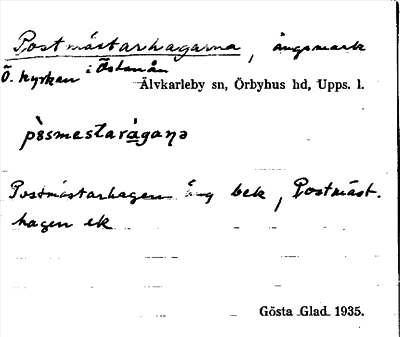 Postmästarhagarna, ängsmark
Ö. kyrkan i Östanån
Älvkarleby sn, Örbyhus hd, Upps. l.
pòsmestarágaṇə
Postmästarhagen äng bek, Postmäst.
hagen ek
Gösta Glad 1935.